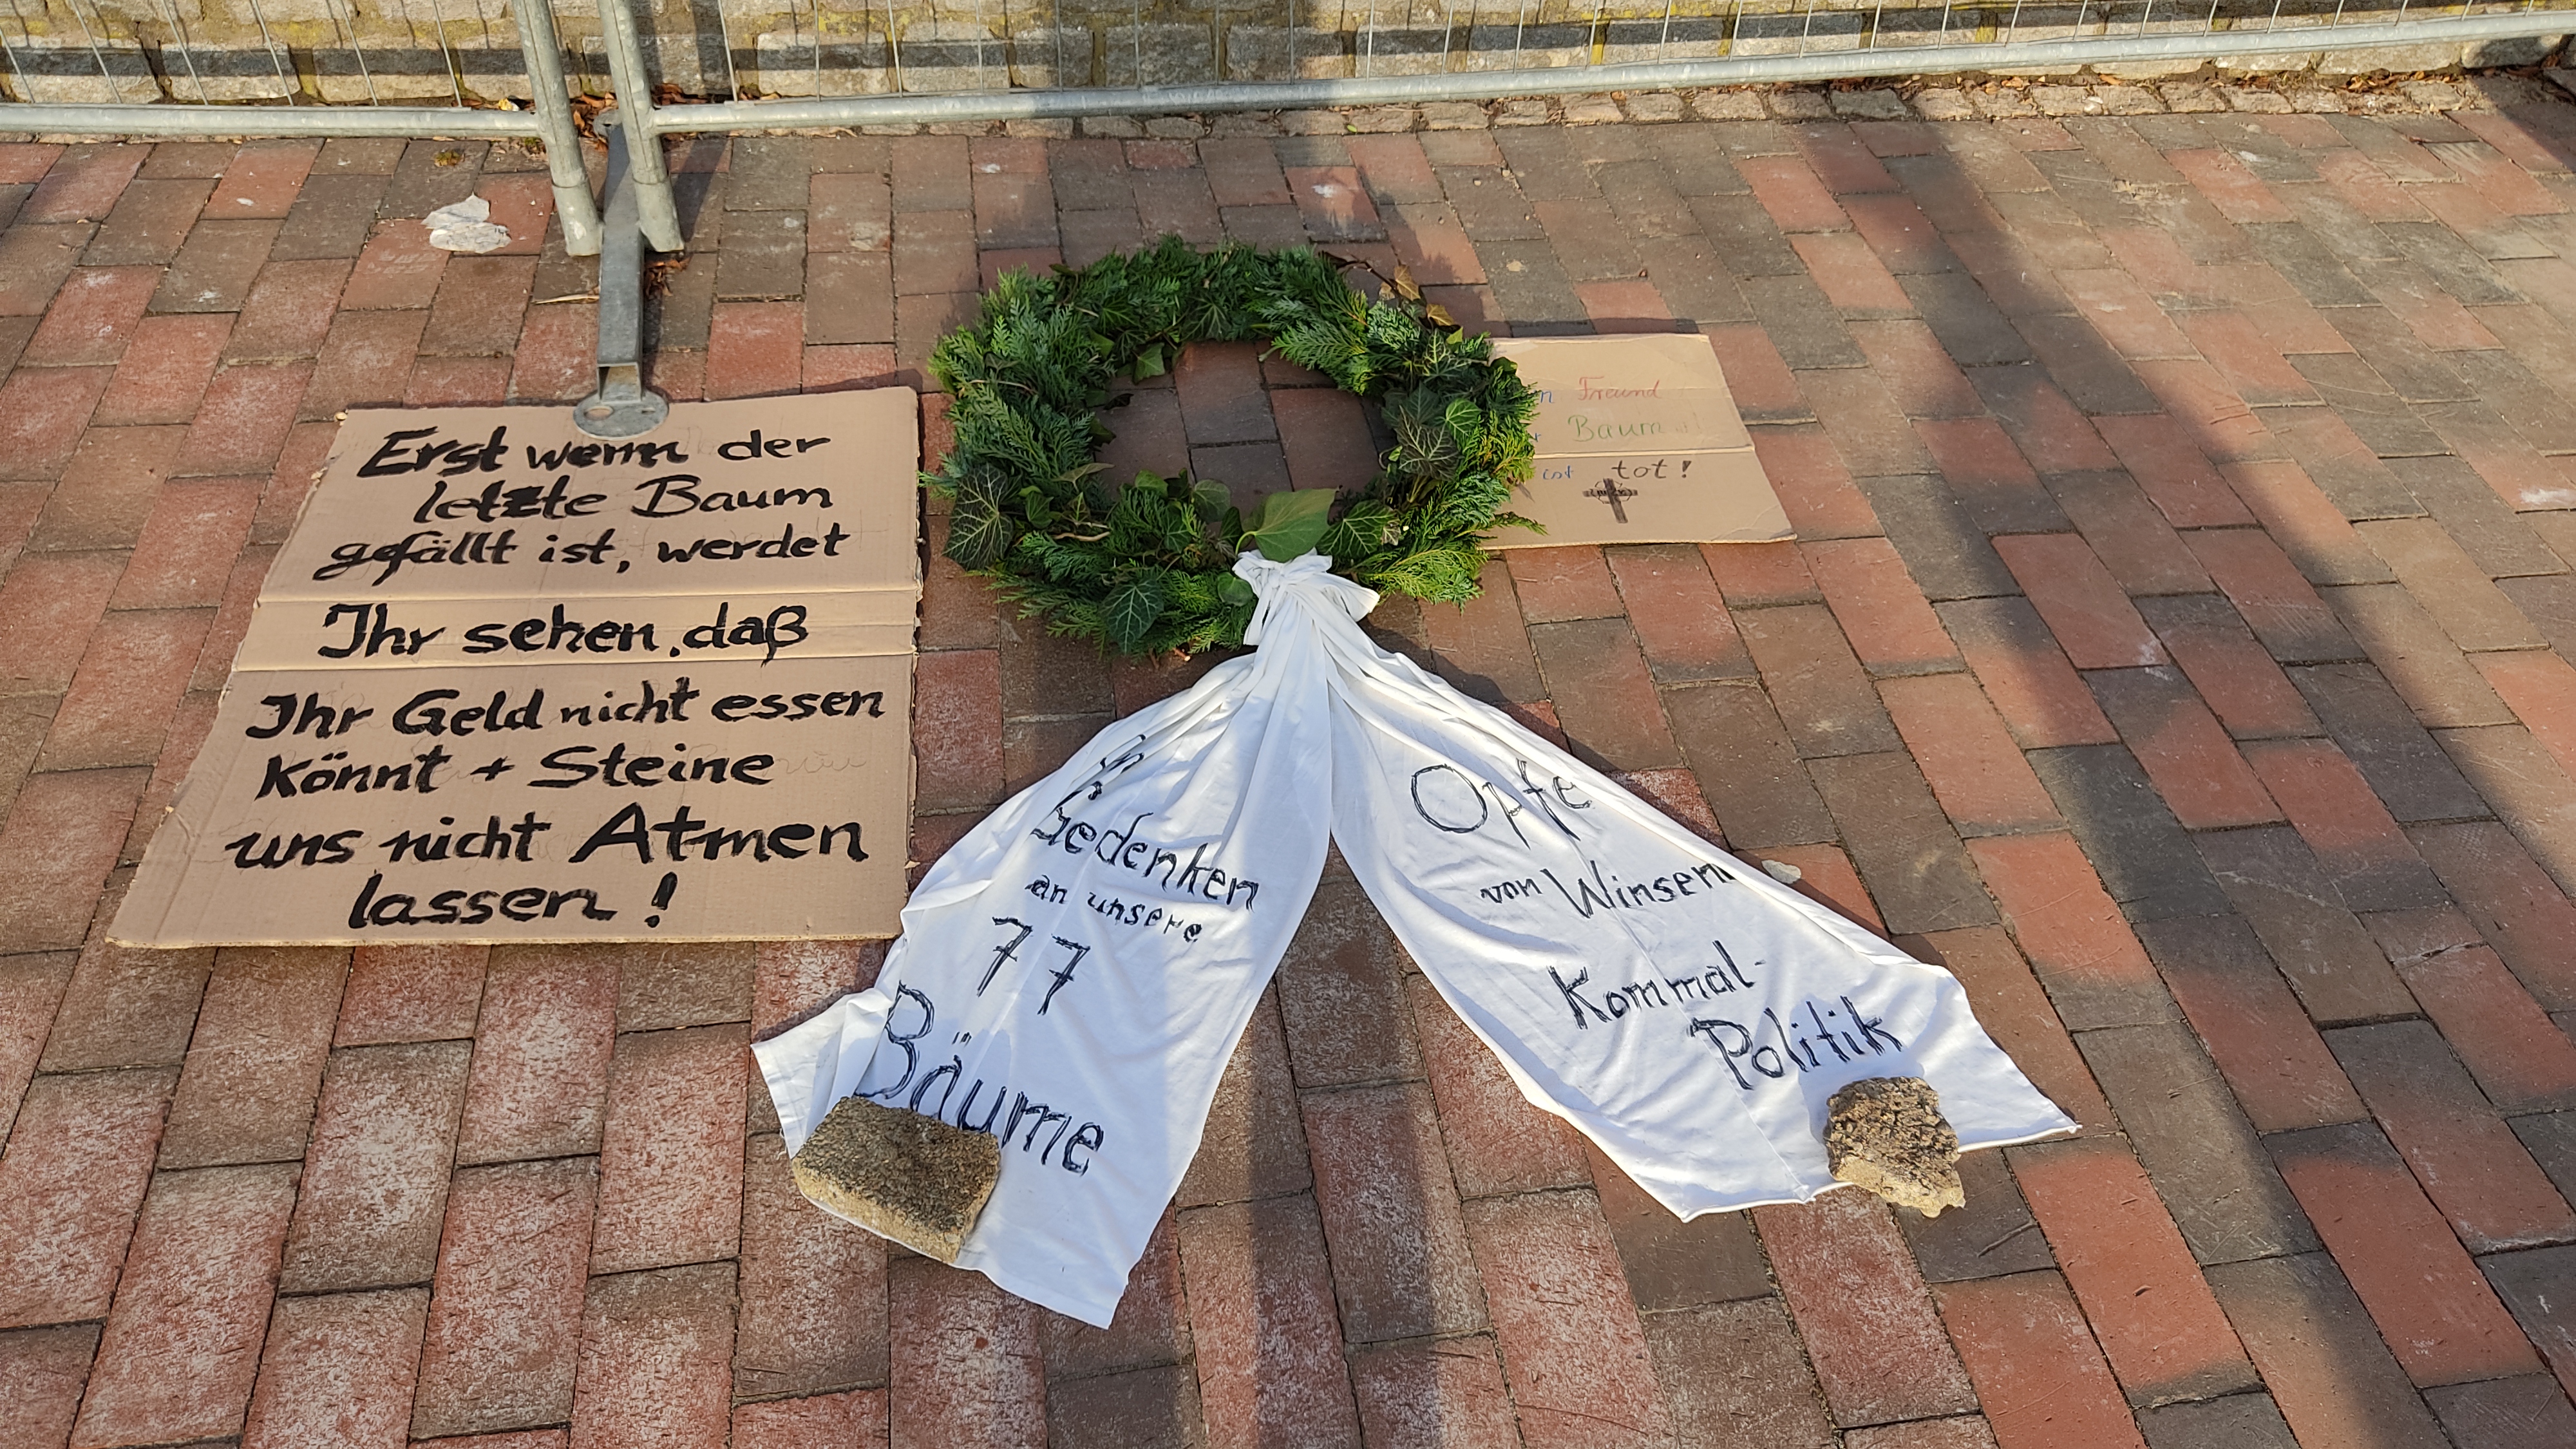 Erst wenn der
letzte Baum
gefällt ist, werdet
Ihr sehen, daß
Ihr Geld nicht essen
könnt + Steine
uns nicht Atmen
lassen!
Freund
Baum
ist tot!
Gedenken
an unsere
77
Bäume
Opfe
von Winsen
Kommal-
Politik